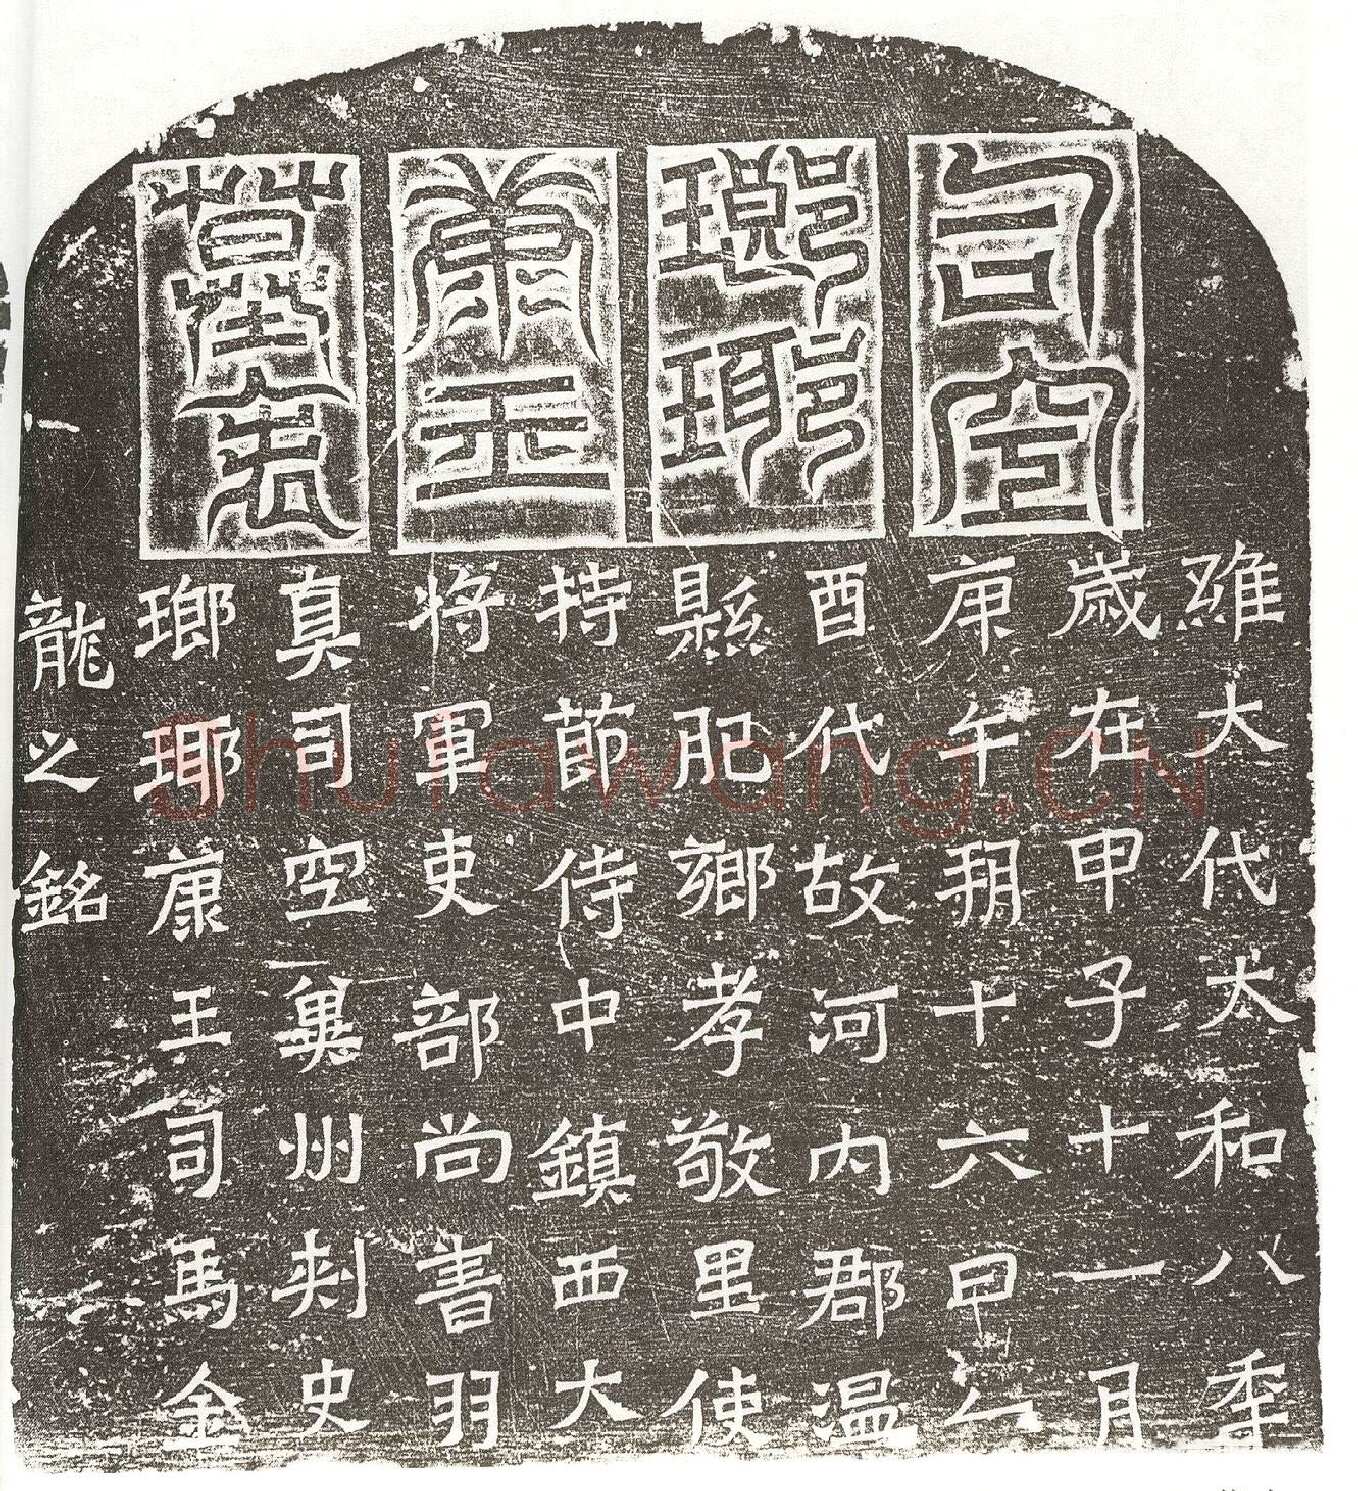 司空
瑯琊
康王
墓表
維大代太和八秊
歲在甲子十一月
庚午朔十六日乙
酉代故河内郡温
縣肥鄉孝敬里使
持節侍中鎮西大
將軍吏部尚書羽
真司空冀州刺史
瑯琊康王司馬金
龍之銘
Shufawang.CN